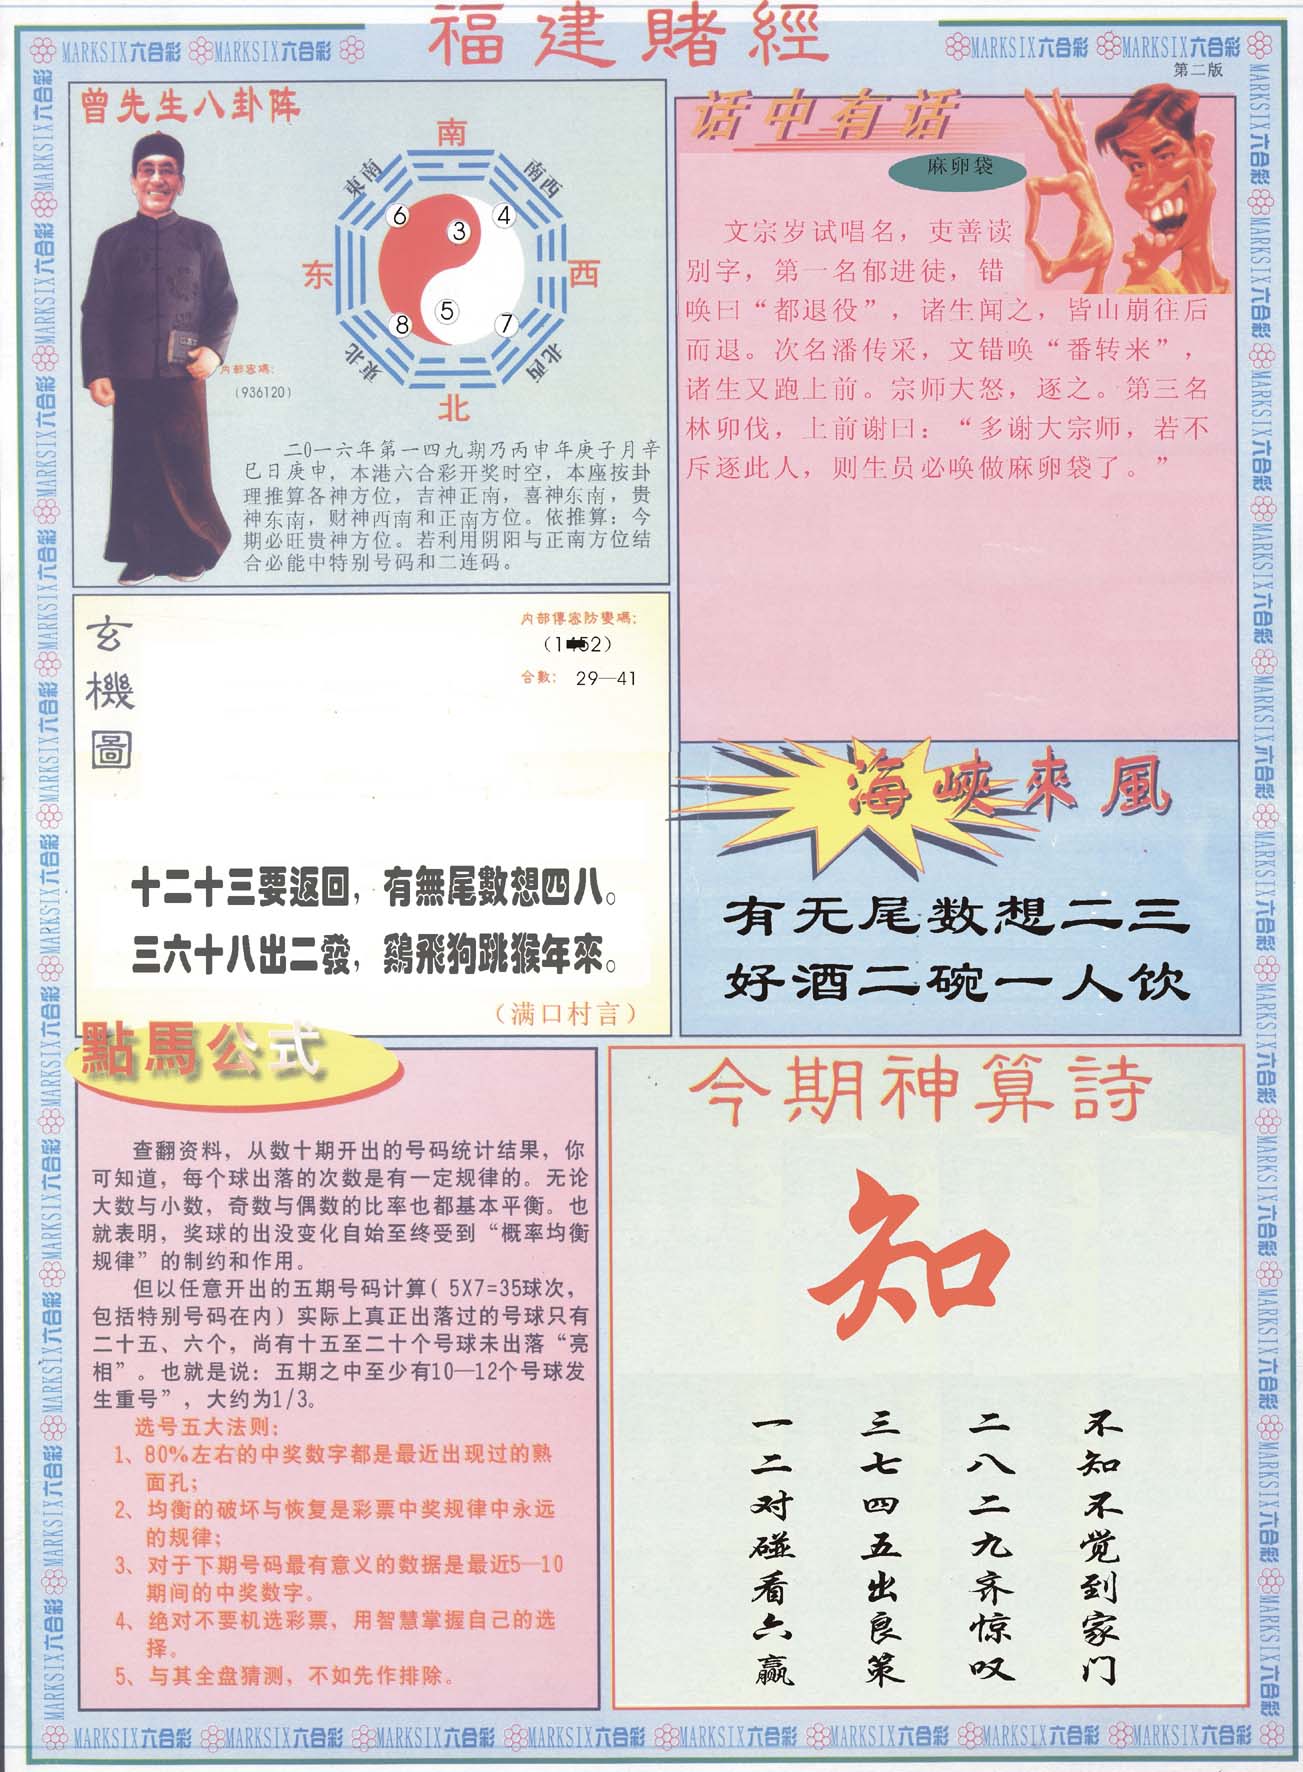 福建賭經
MARKSIX六合彩 MARKSIX六合彩
MARKSIX六合彩 MARKSIX六合彩
第二版
曾先生八卦阵
南
東南
南西
6
3
4
东
西
5
8
7
東北
北西
北
内部密碼:
(936120)
二0一六年第一四九期乃丙申年庚子月辛
巳日庚申，本港六合彩开奖时空，本座按卦
理推算各神方位，吉神正南，喜神东南，贵
神东南，财神西南和正南方位。依推算：今
期必旺贵神方位。若利用阴阳与正南方位结
合必能中特别号码和二连码。
话中有话
麻卵袋
文宗岁试唱名，吏善读
别字，第一名郁进徒，错
唤曰“都退役”，诸生闻之，皆山崩往后
而退。次名潘传采，文错唤“番转来”，
诸生又跑上前。宗师大怒，逐之。第三名
林卯伐，上前谢曰：“多谢大宗师，若不
斥逐此人，则生员必唤做麻卵袋了。”
玄機圖
内部傳密防變碼:
合數: 29—41
十二十三要返回，有無尾數想四八。
三六十八出二發，鷄飛狗跳猴年來。
（满口村言）
海峽來風
有无尾数想二三
好酒二碗一人饮
點馬公式
查翻资料，从数十期开出的号码统计结果，你
可知道，每个球出落的次数是有一定规律的。无论
大数与小数，奇数与偶数的比率也都基本平衡。也
就表明，奖球的出没变化自始至终受到“概率均衡
规律”的制约和作用。
但以任意开出的五期号码计算( 5X7=35球次，
包括特别号码在内) 实际上真正出落过的号球只有
二十五、六个，尚有十五至二十个号球未出落“亮
相”。也就是说：五期之中至少有10—12个号球发
生重号”，大约为1/3。
选号五大法则:
1、80%左右的中奖数字都是最近出现过的熟
面孔;
2、均衡的破坏与恢复是彩票中奖规律中永远
的规律;
3、对于下期号码最有意义的数据是最近5—10
期间的中奖数字。
4、绝对不要机选彩票，用智慧掌握自己的选
择。
5、与其全盘猜测，不如先作排除。
今期神算詩
知
不知不觉到家门
二八二九齐惊叹
三七四五出良策
一二对碰看六赢
MARKSIX六合彩 MARKSIX六合彩 MARKSIX六合彩 MARKSIX六合彩 MARKSIX六合彩 MARKSIX六合彩 MARKSIX六合彩 MARKSIX六合彩